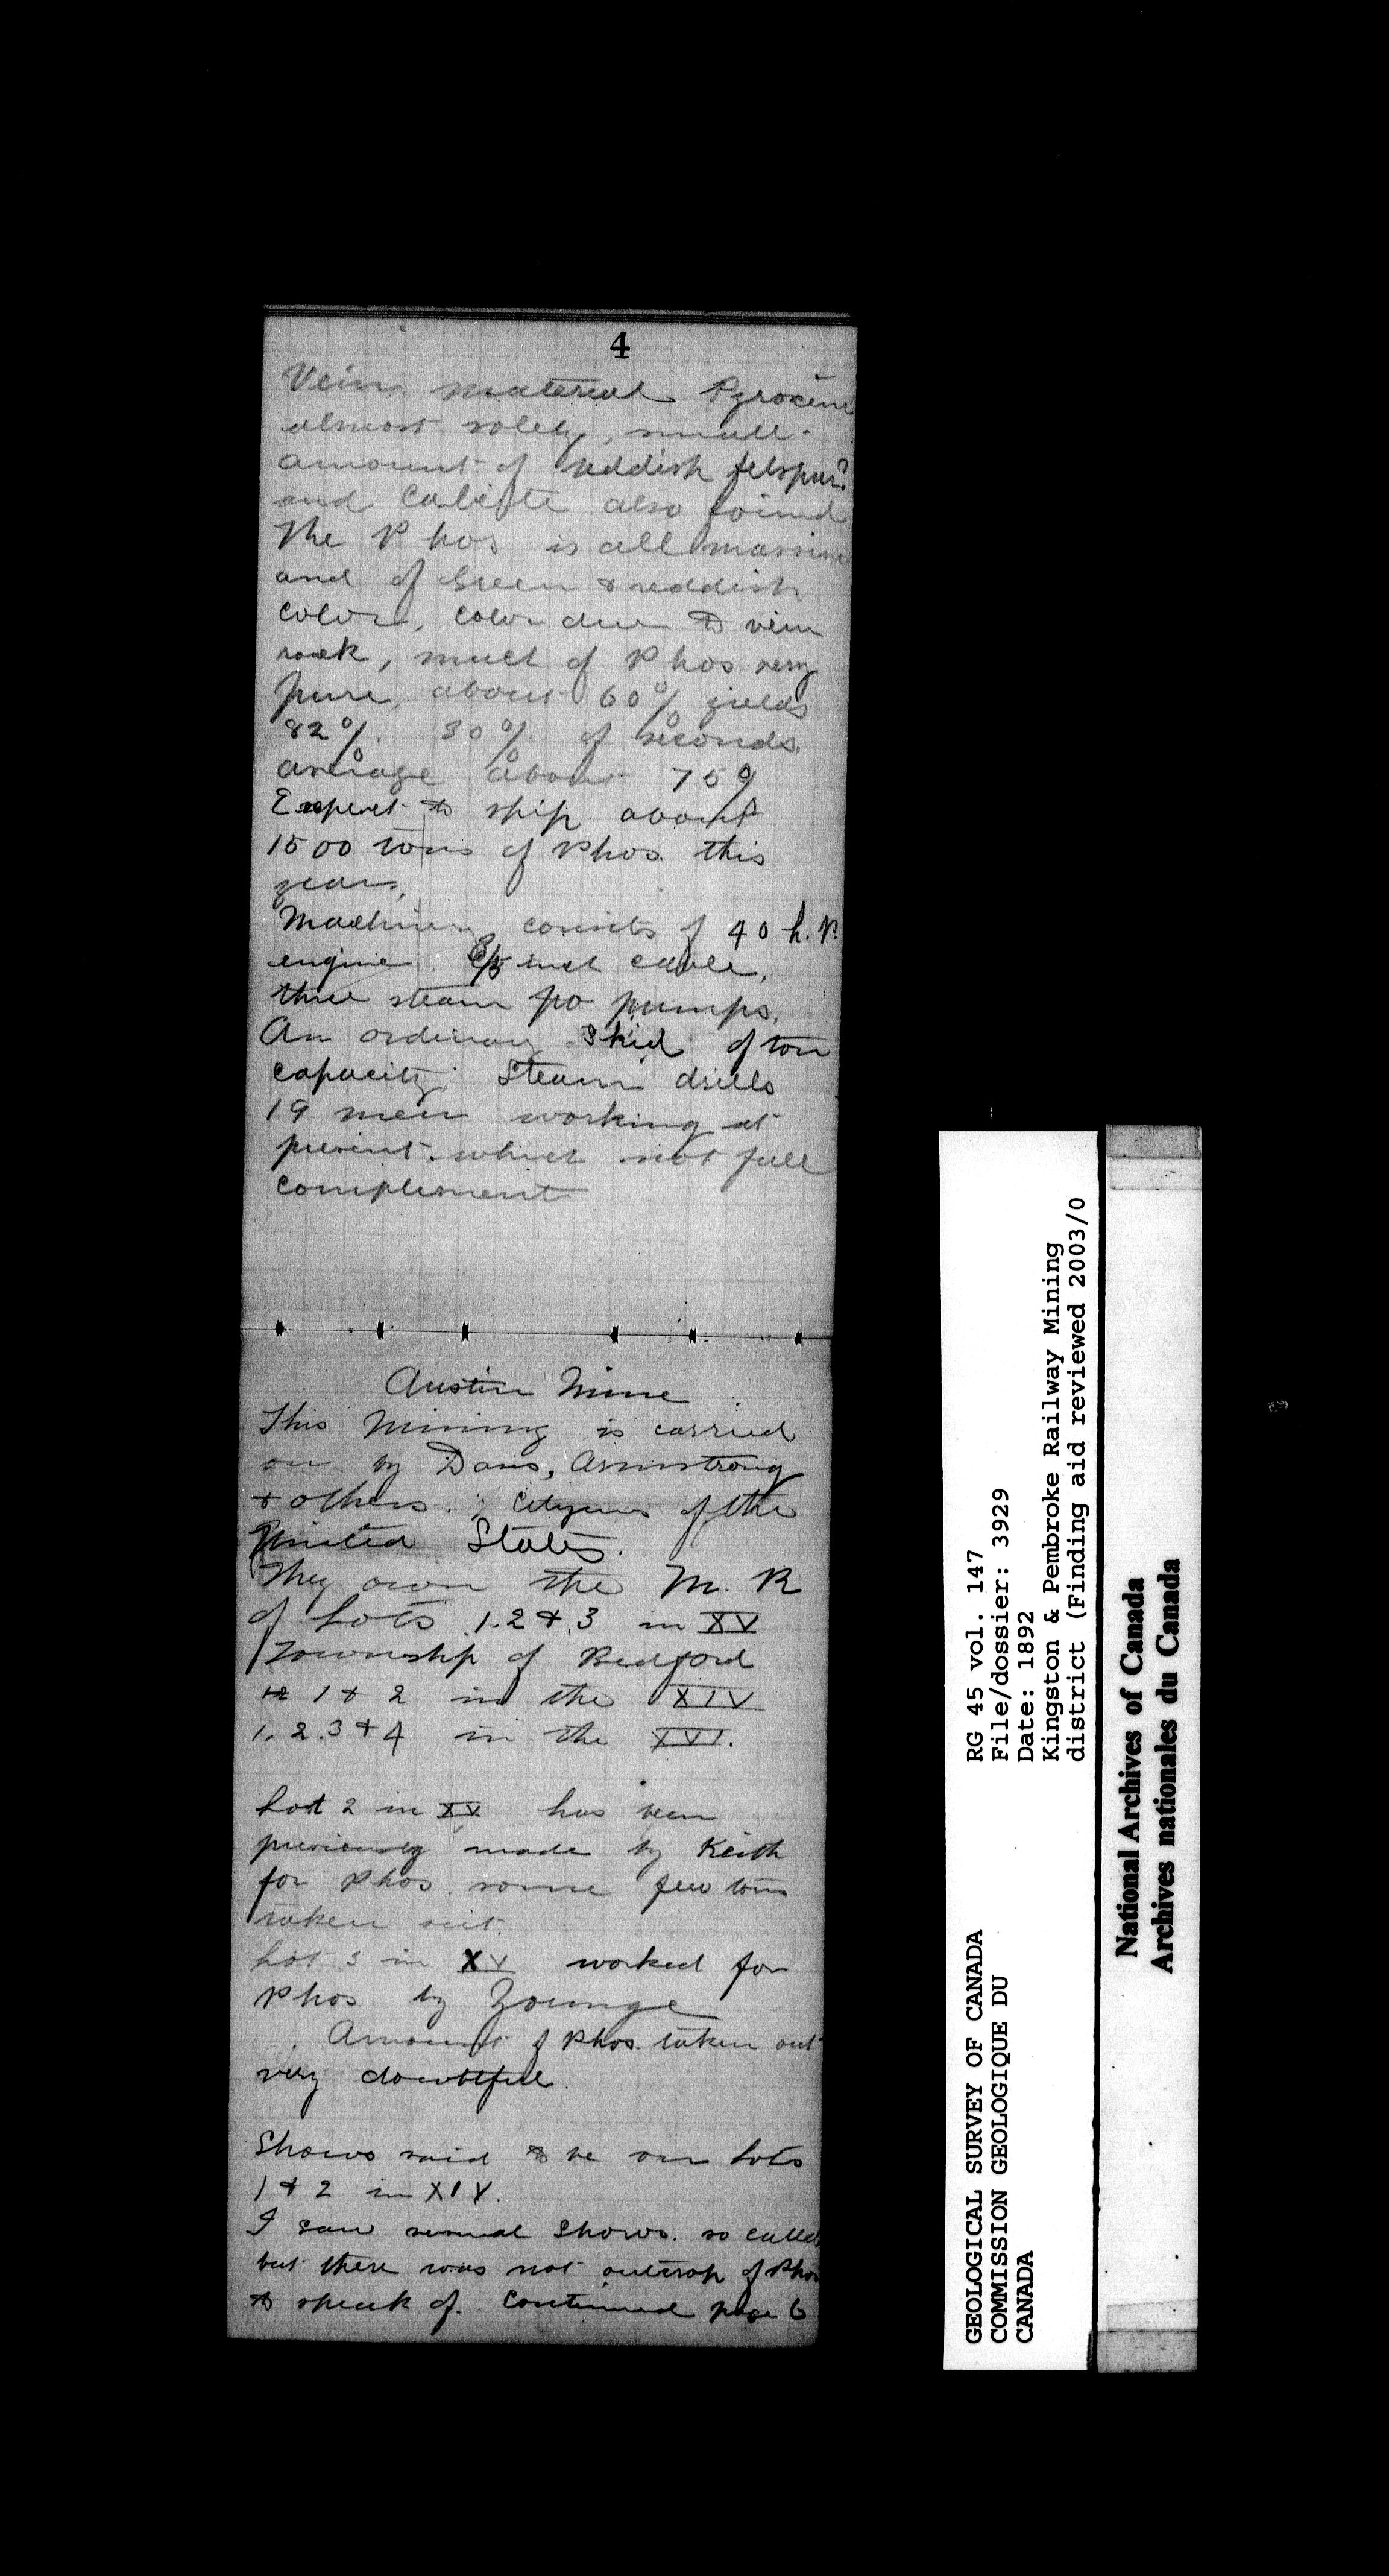 4
Vein material Pyroxene
almost solely, small
amount of reddish felspar?
and Calcite also found
The Phos is all massive
and of Green & reddish
color, color due to vein
rock, much of Phos very
pure, about 60% yields
82% 30% of seconds.
average about 75%
Expect to ship about
1500 tons of Phos. this
year,
Machinery consists of 40 h.P.
engine inch cable,
three steam pumps.
An ordinary skid of ton
capacity. Steam drills
19 men working at
present. which not full
compliment
Austin Mine
This Mining is carried
on by Davis, Armstrong
& others. Citizens of the
United States.
They own the M. R
of Lots 1.2 & 3 in XV
Township of Bedford
1 & 2 in the XIV
1. 2. 3 & 4 in the XVI.
Lot 2 in XV has been
previously made by Keith
for Phos. some few tons
taken out
Lot 3 in XV worked for
Phos by Younge
Amount of Phos. taken out
very doubtful.
Shows said to be on Lots
1 & 2 in XIV.
I saw several shows. so called
but there was not outcrop of Phos
to speak of. Continued page 6
GEOLOGICAL SURVEY OF CANADA
COMMISSION GEOLOGIQUE DU
CANADA
RG 45 vol. 147
File/dossier: 3929
Date: 1892
Kingston & Pembroke Railway Mining
district (Finding aid reviewed 2003/0
National Archives of Canada
Archives nationales du Canada